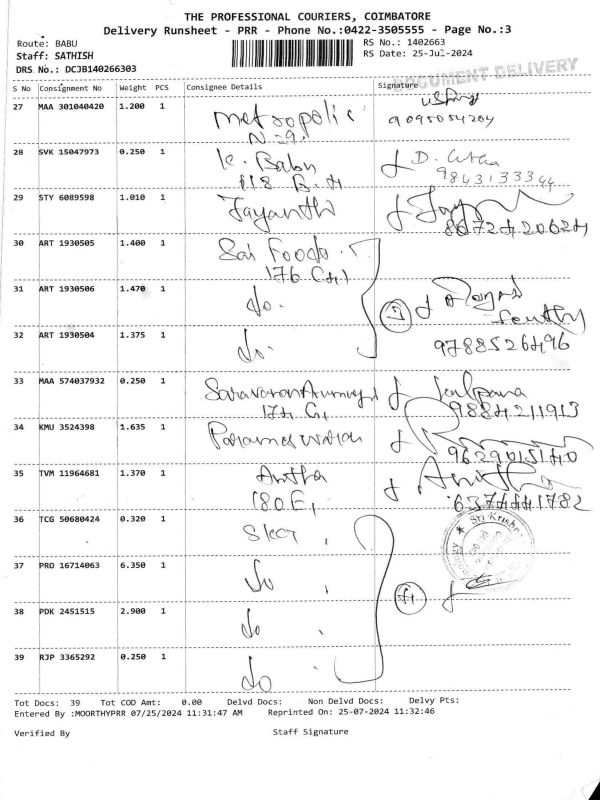 THE PROFESSIONAL COURIERS, COIMBATORE
Delivery Runsheet - PRR - Phone No.:0422-3505555 - Page No.:3
Route: BABU
RS No.: 1402663
Staff: SATHISH
RS Date: 25-Jul-2024
DRS No.: DCJB140266303
DOCUMENT DELIVERY
S No Consignment No Weight PCS Consignee Details Signature
27 MAA 301040420 1.200 1 Metropolis
N-9, 9095054204
28 SVK 15047973 0.250 1 K. Babu D.
118 B, H 9843133344
29 STY 6089598 1.010 1 Jayanthi Jay
8072420624
30 ART 1930505 1.400 1 Sai Foods
176 G,
31 ART 1930506 1.470 1 do.
32 ART 1930504 1.375 1 do.
9788526496
33 MAA 574037932 0.250 1 Kalpana
174 G, 9884211913
34 KMU 3524398 1.635 1
9629015140
35 TVM 11964681 1.370 1 Anitha Anitha
180 E, 6374441782
36 TCG 50680424 0.320 1
Sri Krishna
37 PRO 16714063 6.350 1 do
38 PDK 2451515 2.900 1 do
39 RJP 3365292 0.250 1 do
Tot Docs: 39 Tot COD Amt: 0.00 Delvd Docs: Non Delvd Docs: Delvy Pts:
Entered By :MOORTHYPRR 07/25/2024 11:31:47 AM Reprinted On: 25-07-2024 11:32:46
Verified By Staff Signature